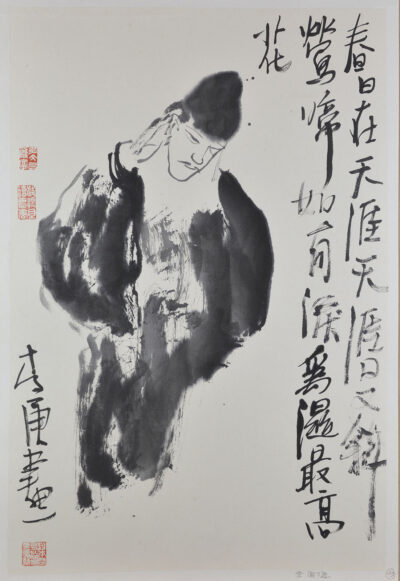 春日在天涯天涯日又斜
鶯啼如有淚爲濕最高
花
李庚